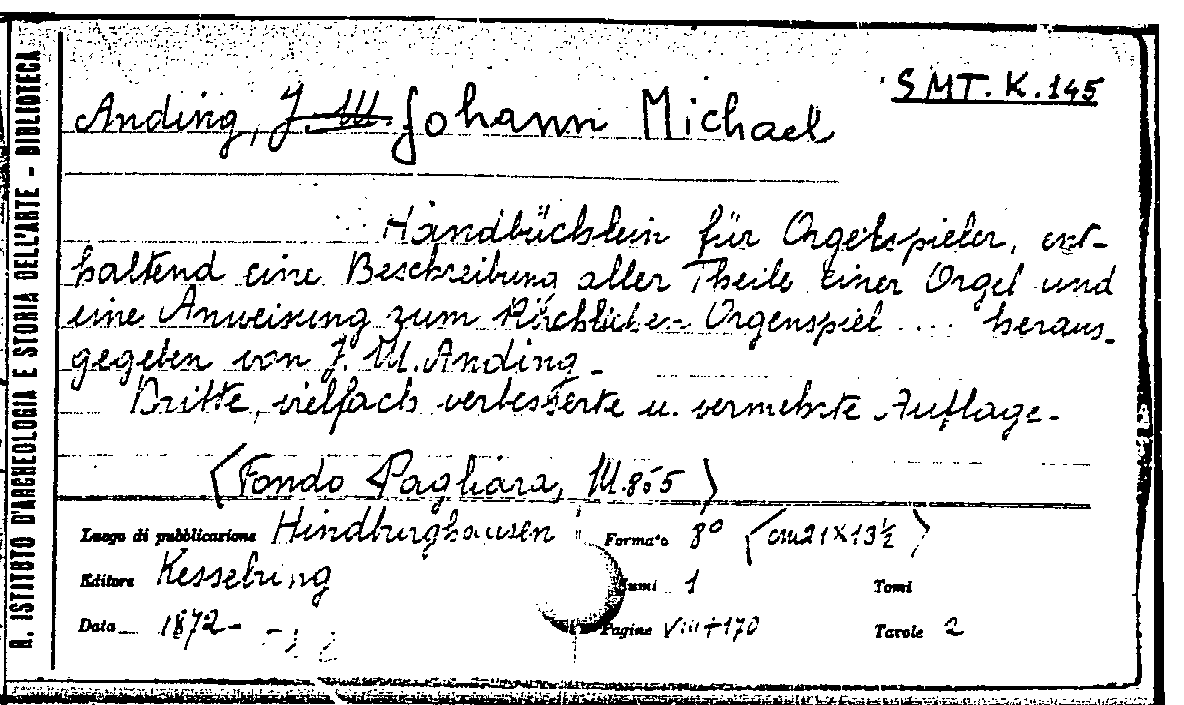 R. ISTITUTO D'ARCHEOLOGIA E STORIA DELL'ARTE - BIBLIOTECA
SMT. K. 145
Anding, J. M. Johann Michael
Handbüchlein für Orgelspieler, ent-
haltend eine Beschreibung aller Theile einer Orgel und
eine Anweisung zum Kirchlichen Orgenspiel .... heraus-
gegeben von J. M. Anding -
Dritte, vielfach verbesserte u. vermehrte Auflage -
(Fondo Pagliara, M.855)
Luogo di pubblicazione Hindburghausen Formato 8° (cm 21 x 13½)
Editore Kesselring umi 1 Tomi
Data 1872 - Pagine VIII+170 Tavole 2